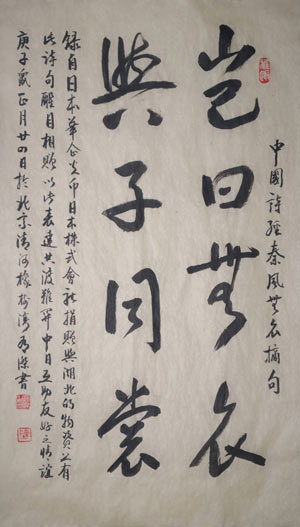 中國詩經秦風無衣摘句
豈曰無衣
與子同裳
錄自日本華企日本株式會社捐贈與湖北的物資上有
此詩句醒目相贈以此表達共渡難關中日互助友好之情誼
庚子歲正月廿四日於北京清河橡樹灣書